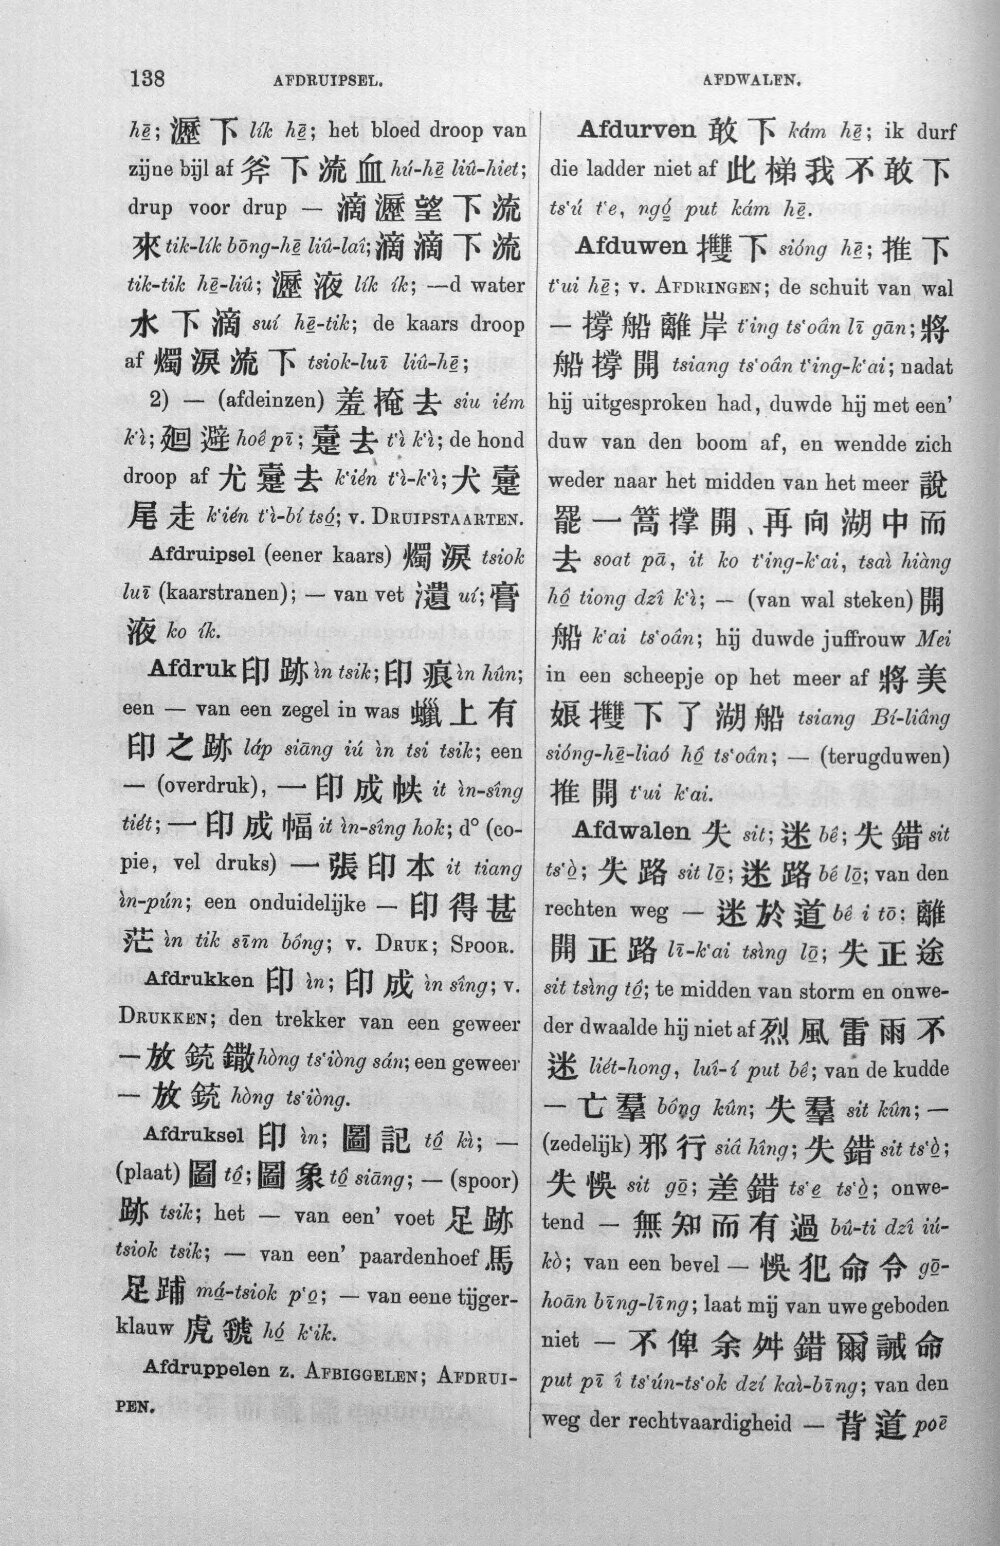 138 AFDRUIPSEL. AFDWALEN.
hē̠; 瀝下 lík hē̠; het bloed droop van
zijne bijl af 斧下流血 hú-hē̠ liû-hiet;
drup voor drup — 滴瀝望下流
來 tik-lík bōng-hē̠ liû-laî; 滴滴下流
tik-tik hē̠-liû; 瀝液 lík ík; —d water
水下滴 suí hē̠-tik; de kaars droop
af 燭淚流下 tsiok-luī liû-hē̠;
2) — (afdeinzen) 羞掩去 siu iém
k'ì; 廻避 hoê pī; 疐去 t'ì k'ì; de hond
droop af 尤疐去 k'ién t'ì-k'ì; 犬疐
尾走 k'ién t'ì-bí tsó̠; v. DRUIPSTAARTEN.
Afdruipsel (eener kaars) 燭淚 tsiok
luī (kaarstranen); — van vet 瀢 uí; 膏
液 ko ík.
Afdruk 印跡 ìn tsik; 印痕 ìn hûn;
een — van een zegel in was 蠟上有
印之跡 láp siāng iú ìn tsi tsik; een
— (overdruk), 一印成帙 it ìn-sîng
tiét; 一印成幅 it ìn-sîng hok; d° (co-
pie, vel druks) 一張印本 it tiang
ìn-pún; een onduidelijke — 印得甚
茫 ìn tik sīm bông; v. DRUK; SPOOR.
Afdrukken 印 ìn; 印成 ìn sîng; v.
DRUKKEN; den trekker van een geweer
— 放銃鏾 hòng ts'iòng sán; een geweer
— 放銃 hòng ts'iòng.
Afdruksel 印 ìn; 圖記 tô̠ kì; —
(plaat) 圖 tô̠; 圖象 tô̠ siāng; — (spoor)
跡 tsik; het — van een' voet 足跡
tsiok tsik; — van een' paardenhoef 馬
足踊 má̠-tsiok p'o̠; — van eene tijger-
klauw 虎虢 hó̠ k'ik.
Afdruppelen z. AFBIGGELEN; AFDRUI-
PEN.
Afdurven 敢下 kám hē̠; ik durf
die ladder niet af 此梯我不敢下
ts'ú t'e, ngó̠ put kám hē̠.
Afduwen 㩳下 sióng hē̠; 推下
t'ui hē̠; v. AFDRINGEN; de schuit van wal
— 撐船離岸 t'ing ts'oân lī gān; 將
船撐開 tsiang ts'oân t'ing-k'ai; nadat
hij uitgesproken had, duwde hij met een'
duw van den boom af, en wendde zich
weder naar het midden van het meer 說
罷一篙撑開、再向湖中而
去 soat pā, it ko t'ing-k'ai, tsaì hiàng
hô̠ tiong dzî k'ì; — (van wal steken) 開
船 k'ai ts'oân; hij duwde juffrouw Mei
in een scheepje op het meer af 將美
娘㩳下了湖船 tsiang Bí-liâng
sióng-hē̠-liaó hô̠ ts'oân; — (terugduwen)
推開 t'ui k'ai.
Afdwalen 失 sit; 迷 bê; 失錯 sit
ts'ò̠; 失路 sit lō̠; 迷路 bé lō̠; van den
rechten weg — 迷於道 bê i tō; 離
開正路 lī-k'ai tsìng lō̠; 失正途
sit tsìng tô̠; te midden van storm en onwe-
der dwaalde hij niet af 烈風雷雨不
迷 liét-hong, luî-í put bê; van de kudde
— 亡羣 bông kûn; 失羣 sit kûn; —
(zedelijk) 邪行 siâ hîng; 失錯 sit ts'ò̠;
失悞 sit gō̠; 差錯 ts'e̠ ts'ò̠; onwe-
tend — 無知而有過 bû-ti dzî iú-
kò; van een bevel — 悞犯命令 gō̠-
hoān bīng-līng; laat mij van uwe geboden
niet — 不俾余舛錯爾誡命
put pī î ts'ún-ts'ok dzí kaì-bīng; van den
weg der rechtvaardigheid — 背道 poē